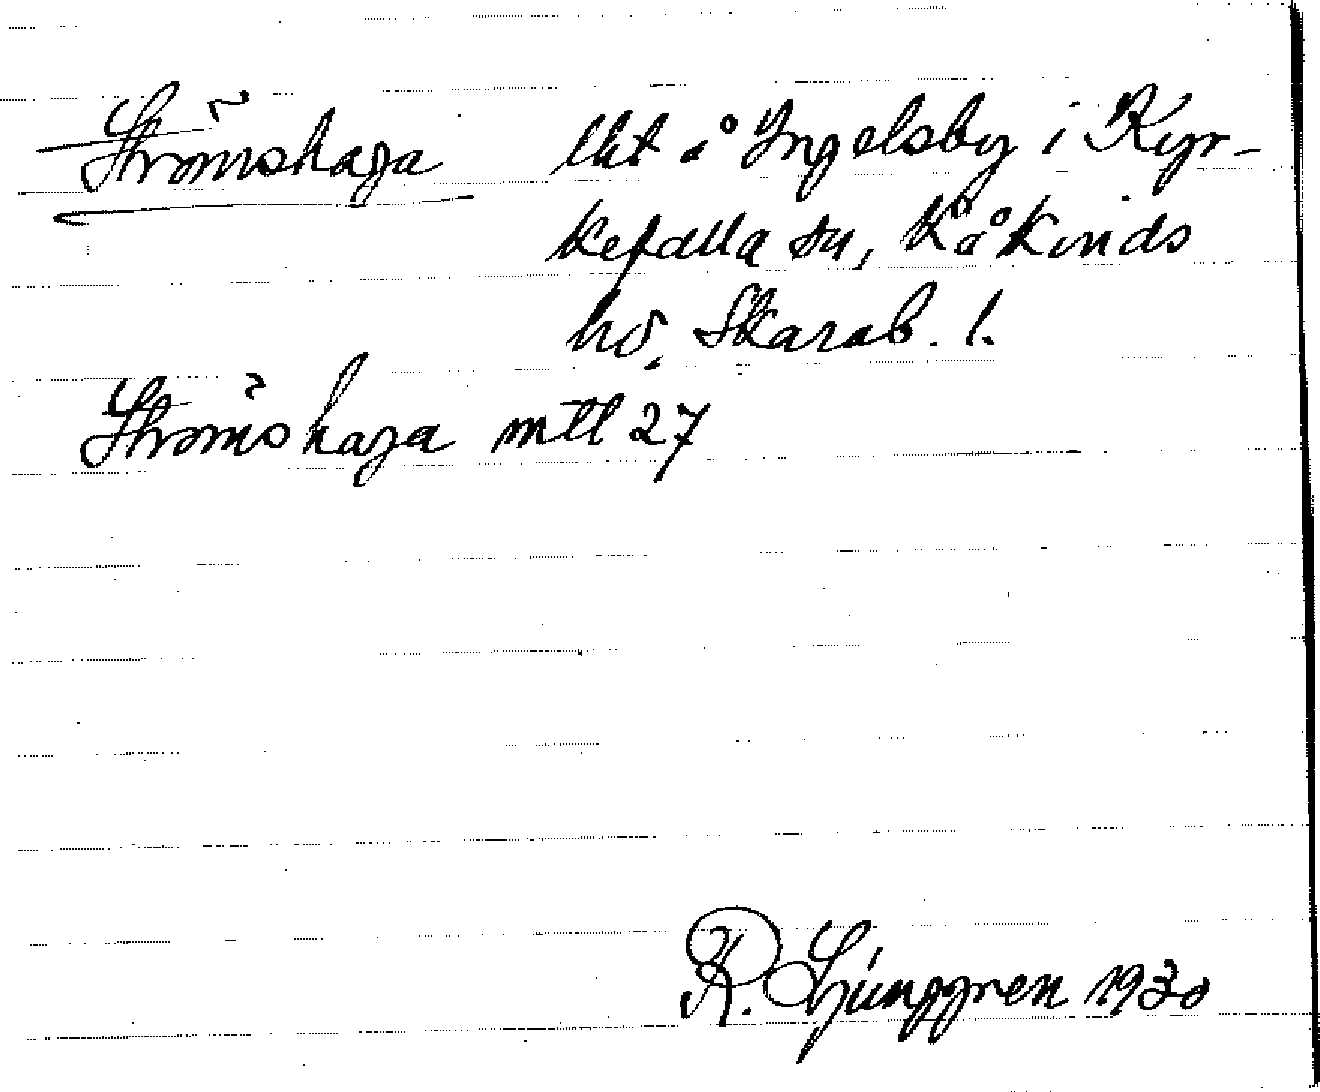 Strömshaga lht å Ingelsby i Kyr-
kefalla sn, Kåkinds
hd, Skarab. l.
Strömshaga mtl 27
R. Ljunggren 1930